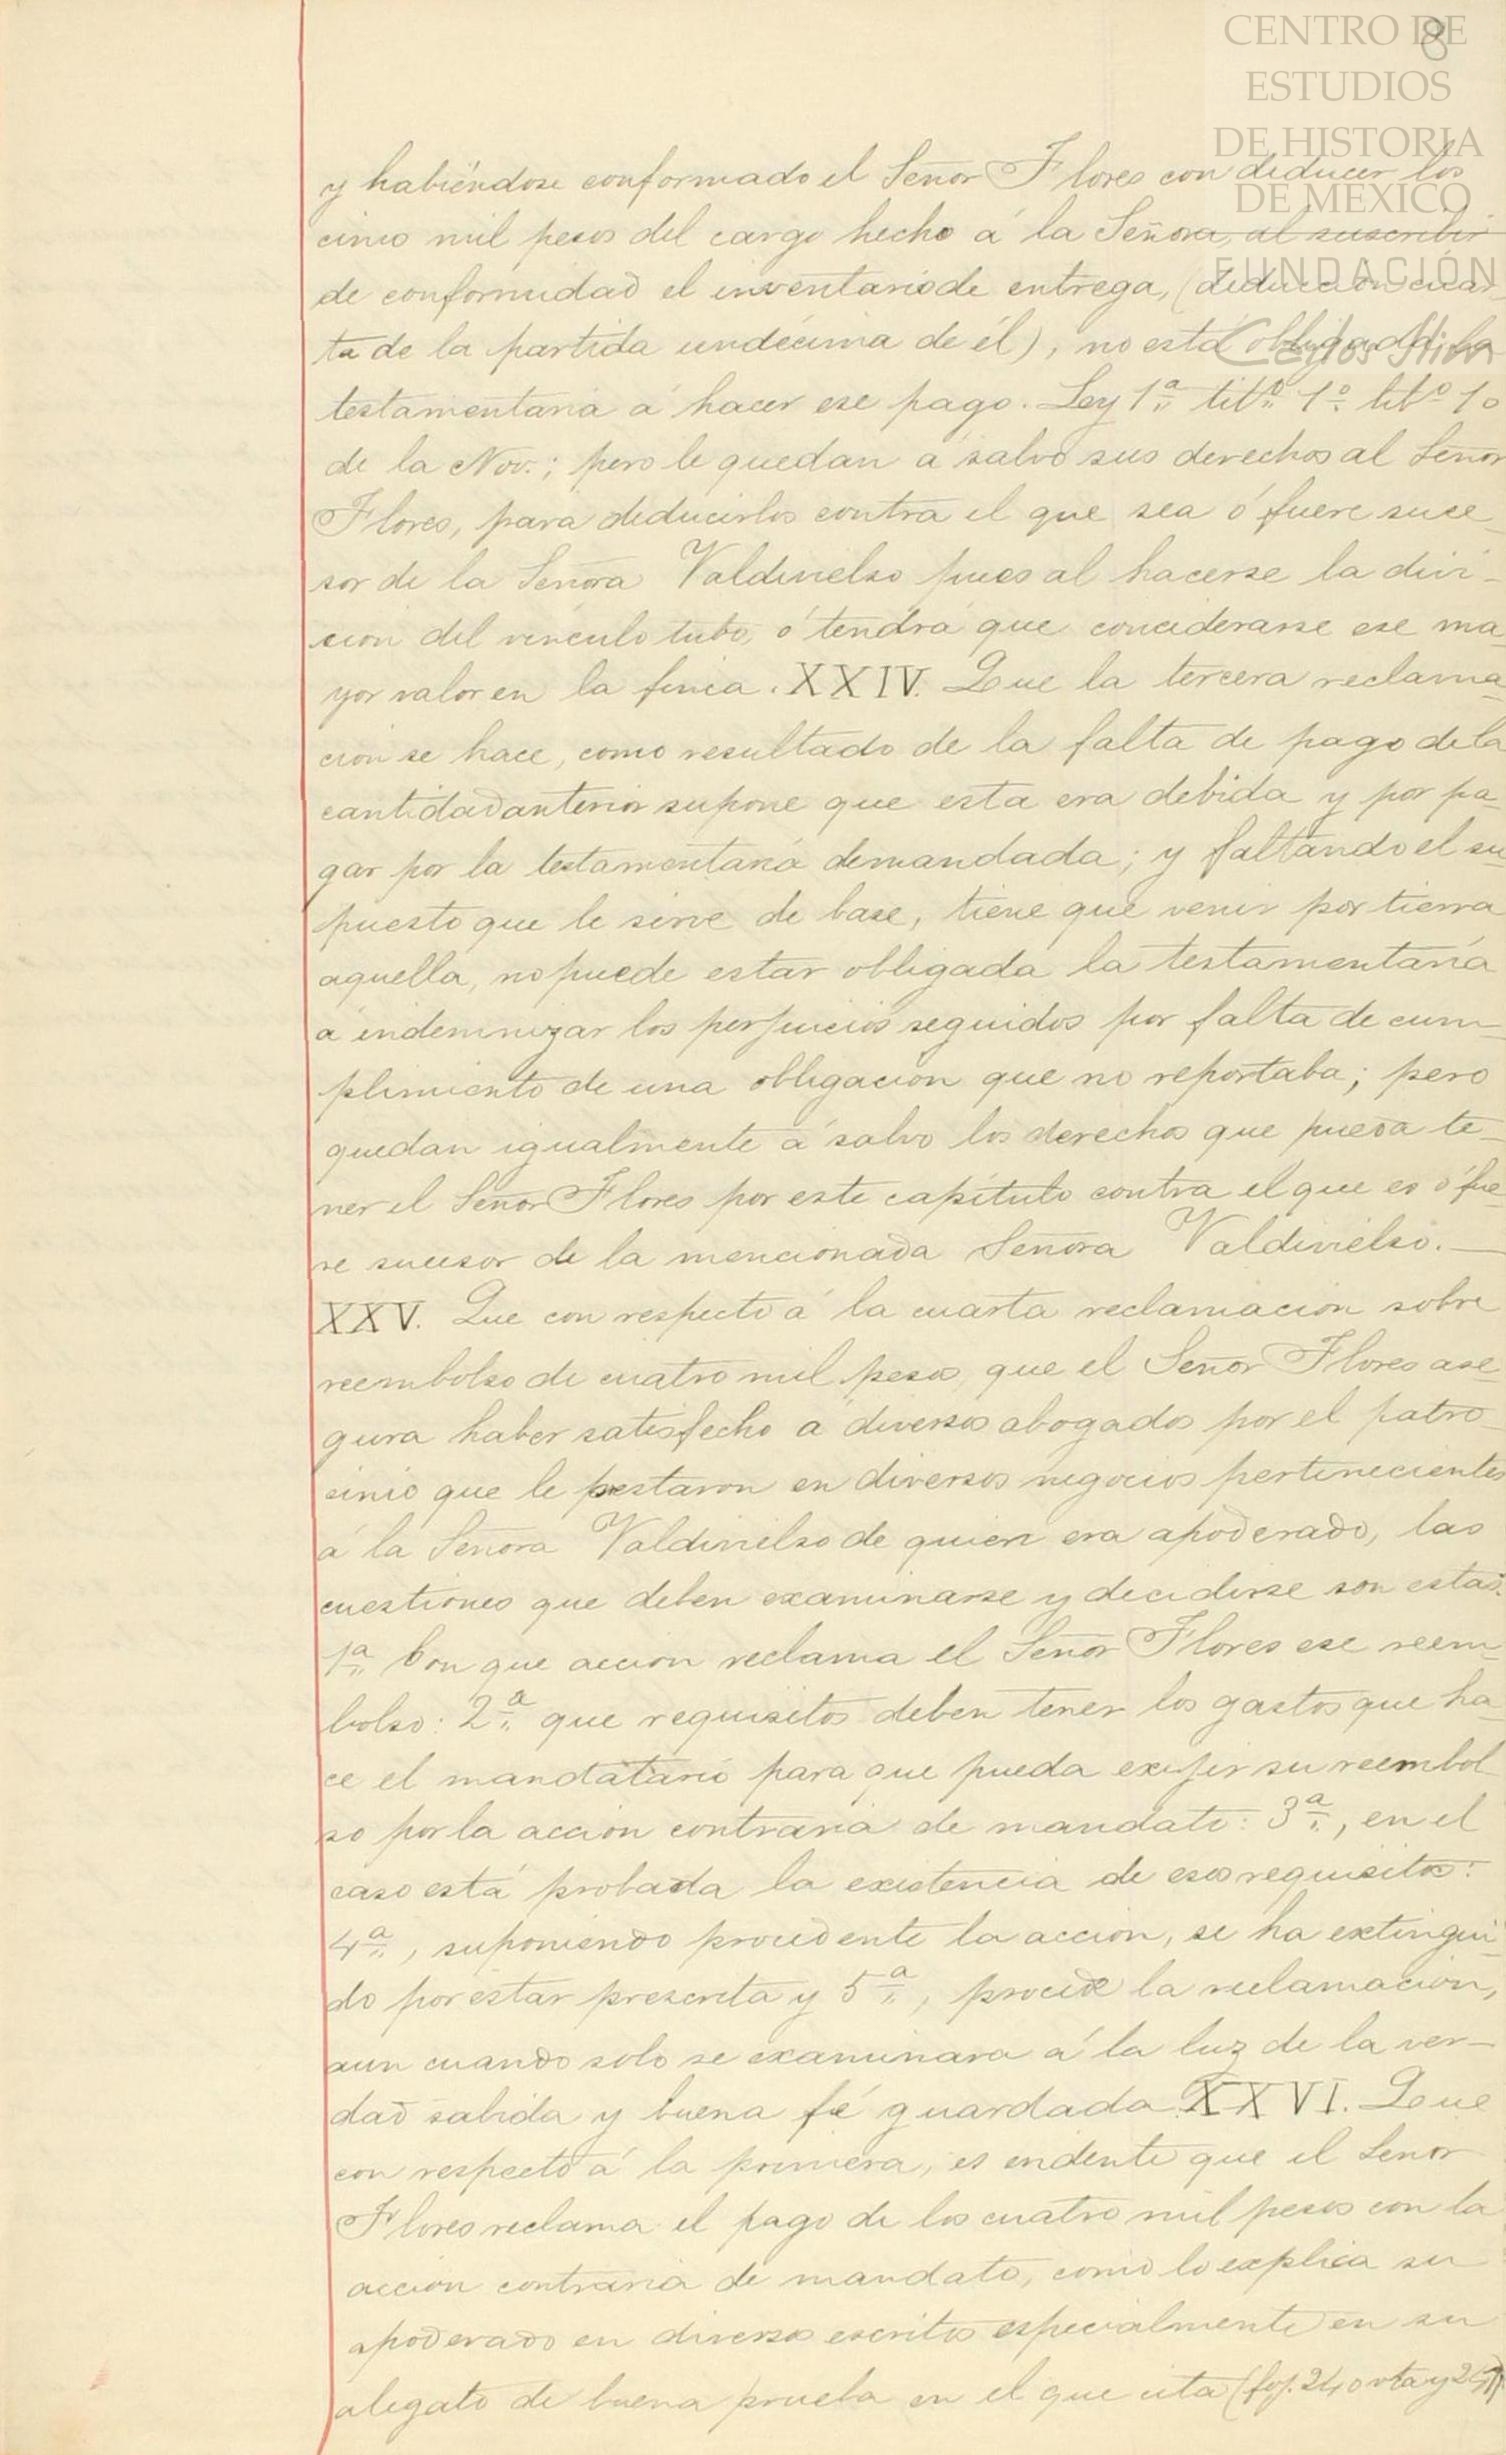 8
CENTRO DE
ESTUDIOS
DE HISTORIA
DE MEXICO
FUNDACIÓN
Carlos Slim
y habiéndose conformado el Señor Flores con deducir los
cinco mil pesos del cargo hecho á la Señora, al suscribir
de conformidad el inventario de entrega, (deduccion cuar-
ta de la partida undécima de él), no está obligada la
testamentaria á hacer ese pago. Ley 1ª titº 1º libº 10
de la Nov.; pero le quedan á salvo sus derechos al Señor
Flores, para deducirlos contra el que sea ó fuere suce-
sor de la Señora Valdivielso pues al hacerse la divi-
cion del vinculo tubo, ó tendrá que conciderarse ese ma
yor valor en la finca. XXIV. Que la tercera reclama-
cion se hace, como resultado de la falta de pago de la
cantidad anterior supone que esta era debida y por pa-
gar por la testamentaria demandada; y faltando el su
puesto que le sirve de base, tiene que venir por tierra
aquella, no puede estar obligada la testamentaría
á indemnizar los perjuicios seguidos por falta de cum-
plimiento de una obligacion que no reportaba; pero
quedan igualmente á salvo los derechos que pueda te-
ner el Señor Flores por este capítulo contra el que es ó fue-
re sucesor de la mencionada Señora Valdivielso. —
XXV. Que con respecto á la cuarta reclamacion sobre
reembolso de cuatro mil pesos, que el Señor Flores ase-
gura haber satisfecho á diversos abogados por el patro-
cinio que le prestaron en diversos negocios pertenecientes
á la Señora Valdivielso de quien era apoderado, las
cuestiones que deben examinarse y decidirse son estas.
1ª Con que accion reclama el Señor Flores ese reem-
bolso: 2ª que requisitos deben tener los gastos que ha-
ce el mandatario para que pueda exijir su reembol
so por la accion contraria de mandato: 3ª, en el
caso está probada la existencia de esos requisitos:
4ª, suponiendo procedente la accion, se ha extingui-
do por estar prescrita y 5ª, procede la reclamacion,
aun cuando solo se examinara á la luz de la ver-
dad sabida y buena fé guardada XXVI. Que
con respecto á la primera, es evidente que el Señor
Flores reclama el pago de los cuatro mil pesos con la
accion contraria de mandato, como lo explica su
apoderado en diversos escritos especialmente en su
alegato de buena prueba en el que cita (foj. 240 vta y